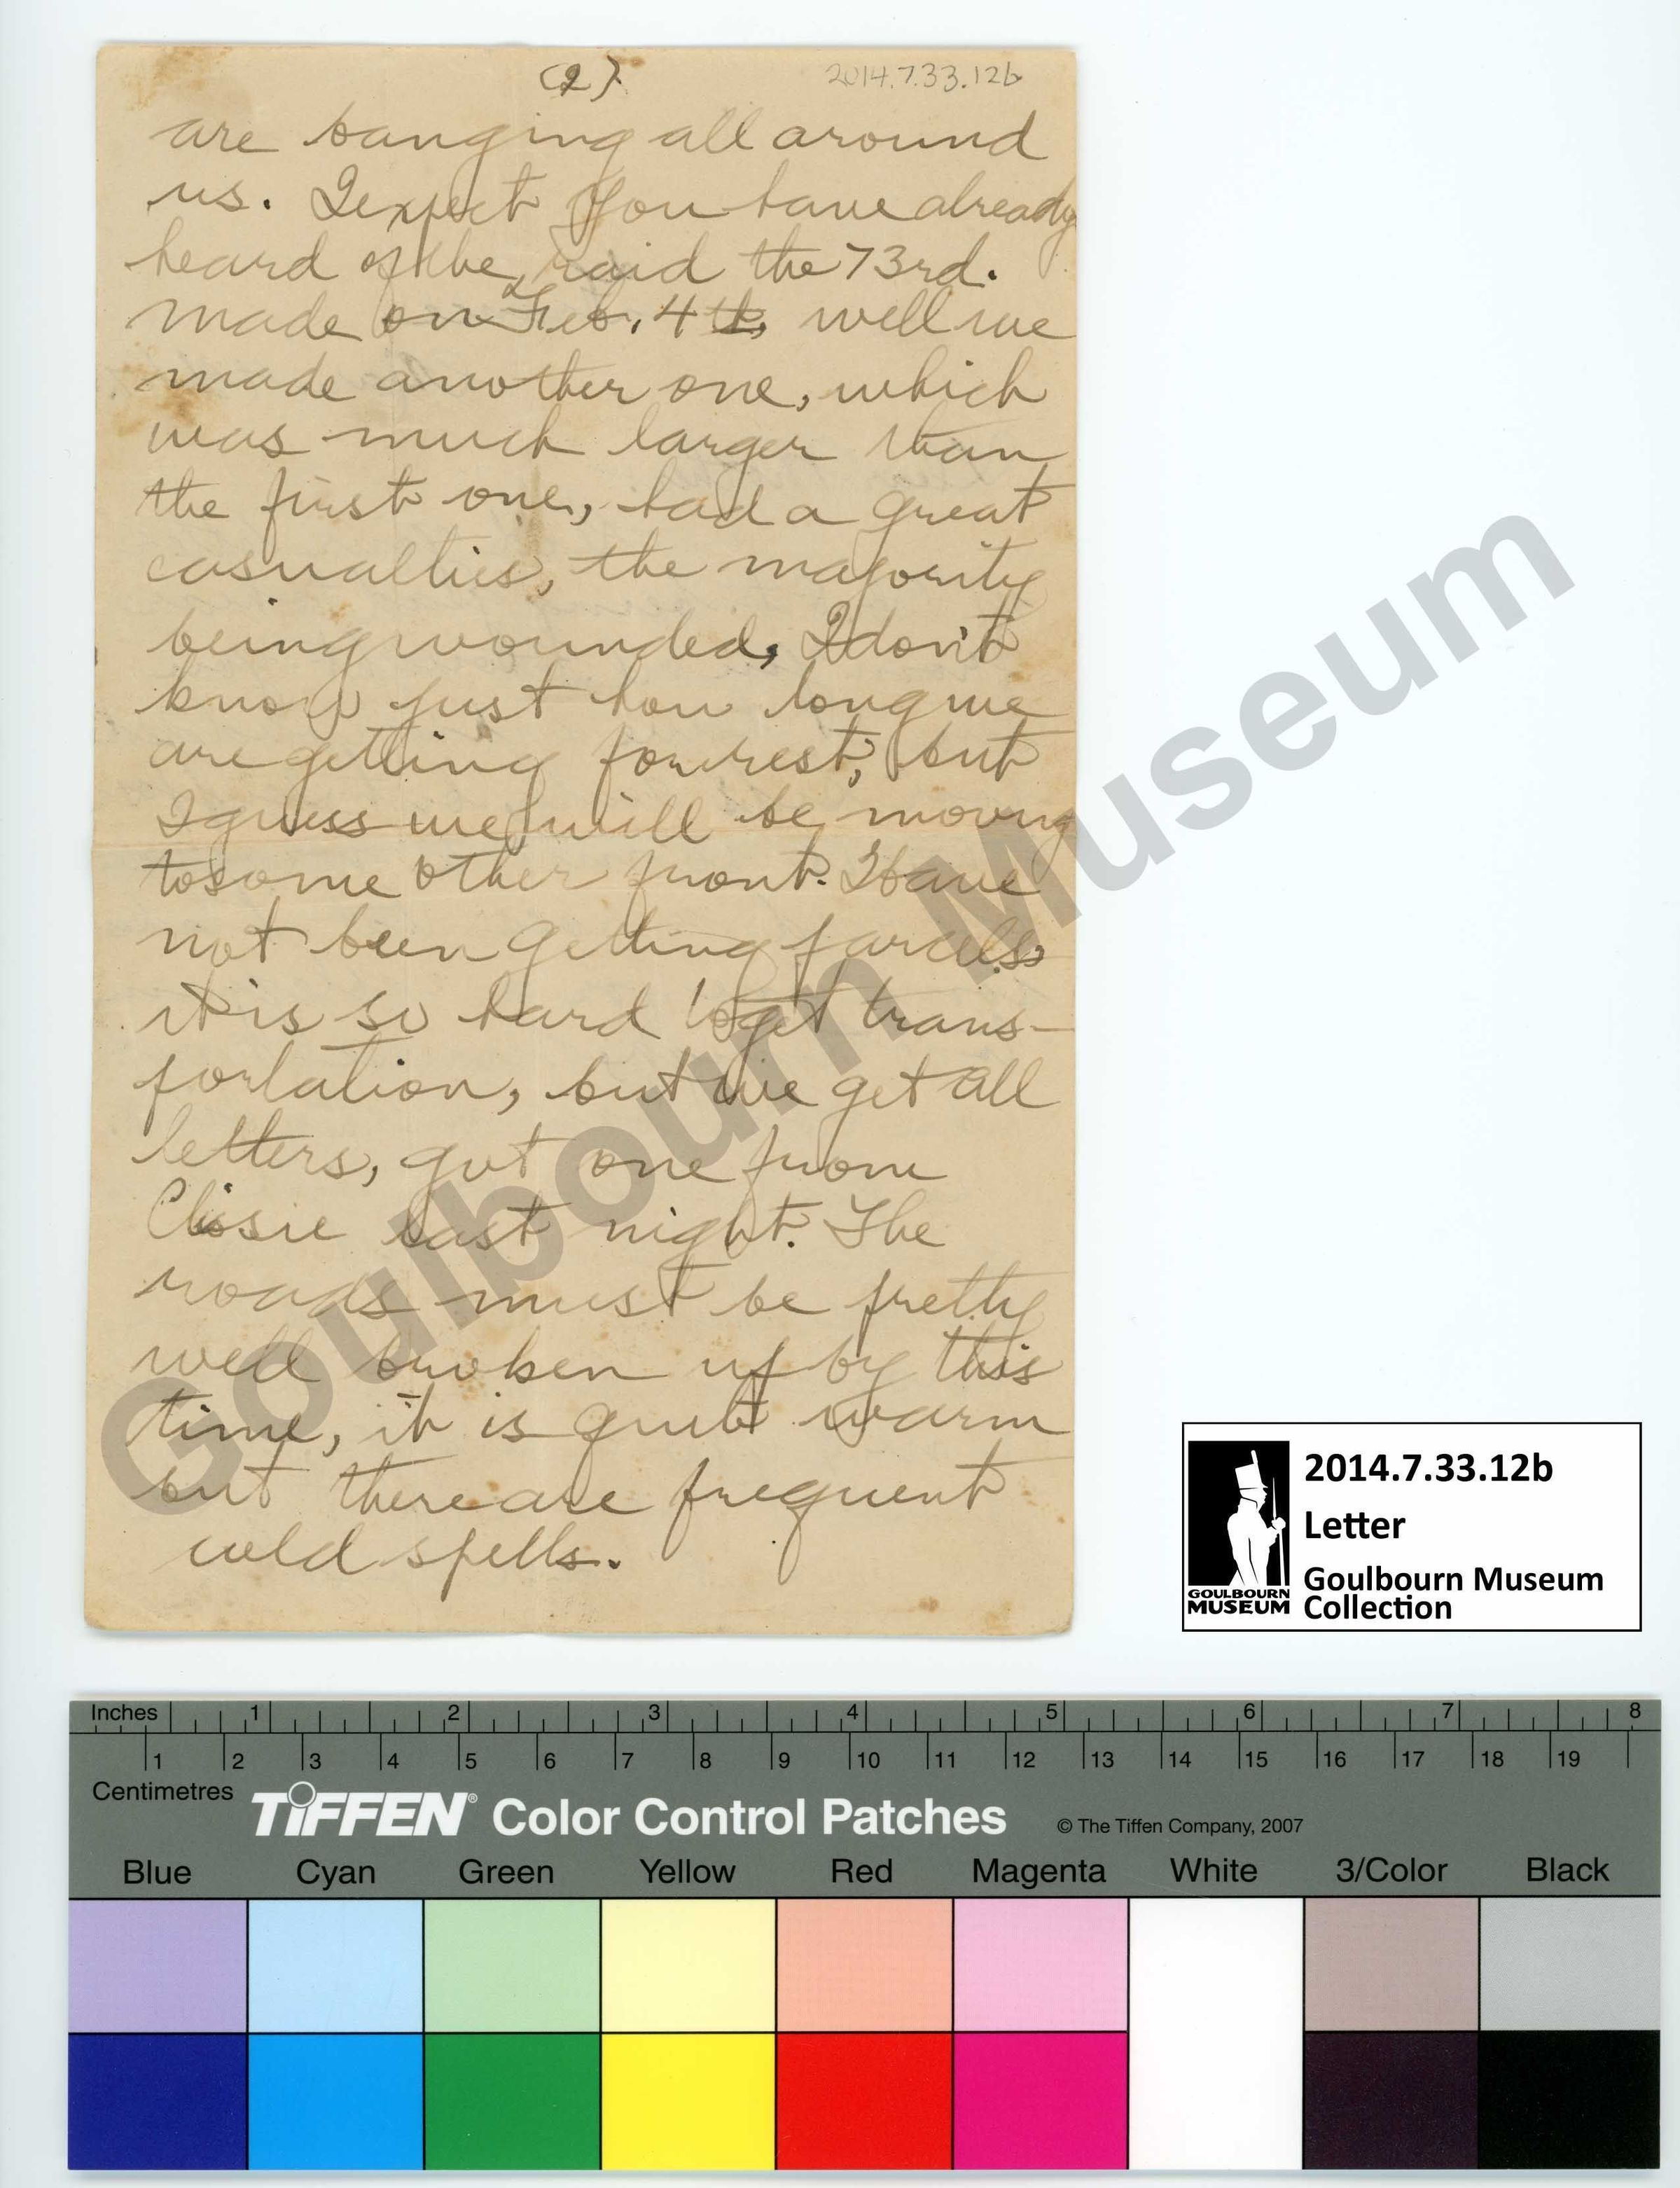 (2)
2014.7.33.12b
are banging all around
us. I expect you have already
heard of the raid the 73rd.
made on Feb. 4th, well we
made another one, which
was much larger than
the first one, had a great
casualties, the majority
being wounded, I don't
know just how long we
are getting for rest, but
I guess we will be moving
to some other front. I have
not been getting parcels
it is so hard to get trans-
portation, but we get all
letters, got one from
last night. The
roads must be pretty
well broken up by this
time, it is quit warm
but there are frequent
cold spells.
Goulbourn Museum
2014.7.33.12b
Letter
Goulbourn Museum
Collection
GOULBOURN
MUSEUM
Inches 1 2 3 4 5 6 7 8
1 2 3 4 5 6 7 8 9 10 11 12 13 14 15 16 17 18 19
Centimetres
TIFFEN® Color Control Patches © The Tiffen Company, 2007
Blue Cyan Green Yellow Red Magenta White 3/Color Black